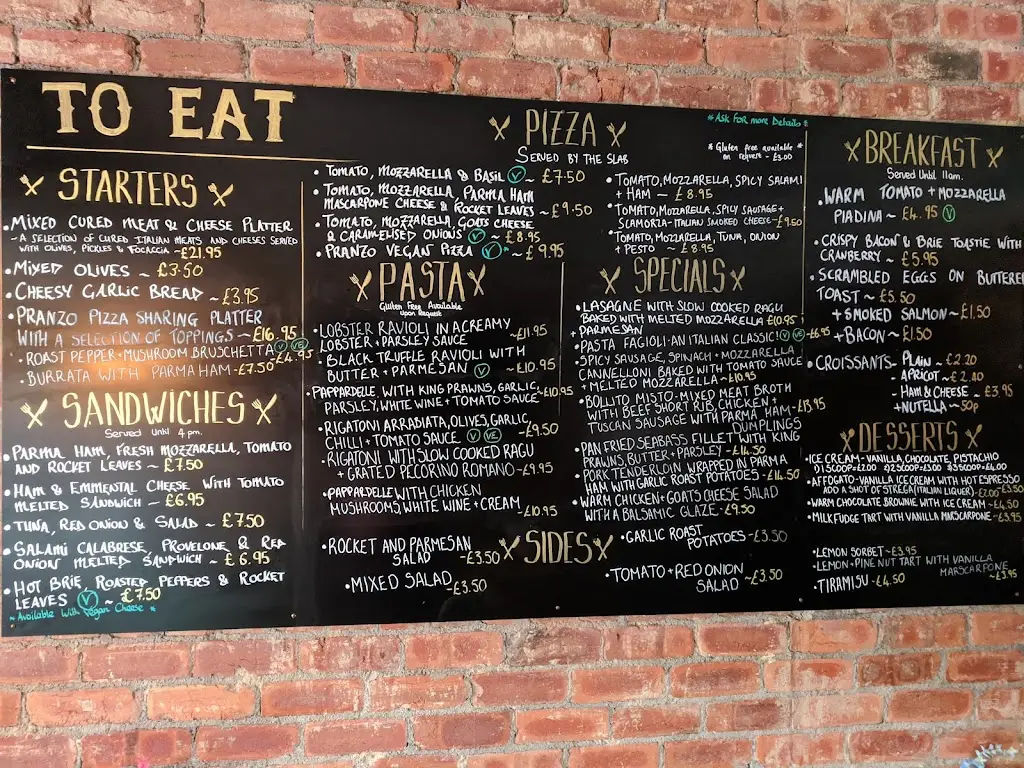 TO EAT
STARTERS
• MIXED CURED MEAT & CHEESE PLATTER
- A SELECTION OF CURED ITALIAN MEATS AND CHEESES SERVED
WITH OLIVES, PICKLES & FOCACCIA - £21.95
• MIXED OLIVES ~ £3.50
• CHEESY GARLIC BREAD ~ £3.95
• PRANZO PIZZA SHARING PLATTER
WITH A SELECTION OF TOPPINGS ~ £16.95
• ROAST PEPPER + MUSHROOM BRUSCHETTA V VE £4.95
• BURRATA WITH PARMA HAM - £7.50
SANDWICHES
Served Until 4pm.
• PARMA HAM, FRESH MOZZARELLA, TOMATO
AND ROCKET LEAVES ~ £7.50
• HAM & EMMENTAL CHEESE WITH TOMATO
MELTED SANDWICH ~ £6.95
• TUNA, RED ONION & SALAD ~ £7.50
• SALAMI CALABRESE, PROVELONE & RED
ONION MELTED SANDWICH ~ £6.95
• HOT BRIE, ROASTED PEPPERS & ROCKET
LEAVES V ~ £7.50
* Available With Vegan Cheese *
PIZZA
SERVED BY THE SLAB
* Ask For more Details *
* Gluten free available
on request - £3.00
• TOMATO, MOZZARELLA & BASIL V ~ £7.50
• TOMATO, MOZZARELLA, PARMA HAM
MASCARPONE CHEESE & ROCKET LEAVES ~ £9.50
• TOMATO, MOZZARELLA, GOATS CHEESE
& CARAMELISED ONIONS V ~ £8.95
• PRANZO VEGAN PIZZA V ~ £9.95
• TOMATO, MOZZARELLA, SPICY SALAMI
+ HAM ~ £8.95
• TOMATO, MOZZARELLA, SPICY SAUSAGE +
SCAMORZA - ITALIAN SMOKED CHEESE - £9.50
• TOMATO, MOZZARELLA, TUNA, ONION
+ PESTO ~ £8.95
PASTA
Gluten Free Available
Upon Request
• LOBSTER RAVIOLI IN A CREAMY
LOBSTER + PARSLEY SAUCE ~ £11.95
• BLACK TRUFFLE RAVIOLI WITH
BUTTER + PARMESAN V ~ £10.95
• PAPPARDELLE WITH KING PRAWNS, GARLIC,
PARSLEY, WHITE WINE + TOMATO SAUCE ~ £10.95
• RIGATONI ARRABIATA, OLIVES, GARLIC,
CHILLI + TOMATO SAUCE V VE ~ £9.50
• RIGATONI WITH SLOW COOKED RAGU
+ GRATED PECORINO ROMANO ~ £9.95
• PAPPARDELLE WITH CHICKEN
MUSHROOMS, WHITE WINE + CREAM ~ £10.95
SPECIALS
• LASAGNE WITH SLOW COOKED RAGU
BAKED WITH MELTED MOZZARELLA £10.95
+ PARMESAN
• PASTA FAGIOLI - AN ITALIAN CLASSIC! V VE - £6.95
• SPICY SAUSAGE, SPINACH + MOZZARELLA
CANNELLONI BAKED WITH TOMATO SAUCE
+ MELTED MOZZARELLA ~ £10.95
• BOLLITO MISTO - MIXED MEAT BROTH
WITH BEEF SHORT RIB, CHICKEN +
TUSCAN SAUSAGE WITH PARMA HAM - £13.95
DUMPLINGS
• PAN FRIED SEABASS FILLET WITH KING
PRAWNS, BUTTER + PARSLEY - £14.50
• PORK TENDERLOIN WRAPPED IN PARMA
HAM WITH GARLIC ROAST POTATOES - £14.50
• WARM CHICKEN + GOATS CHEESE SALAD
WITH A BALSAMIC GLAZE - £9.50
SIDES
• ROCKET AND PARMESAN
SALAD ~ £3.50
• MIXED SALAD ~ £3.50
• GARLIC ROAST
POTATOES - £3.50
• TOMATO + RED ONION
SALAD ~ £3.50
BREAKFAST
Served Until 11am.
• WARM TOMATO + MOZZARELLA
PIADINA ~ £4.95 V
• CRISPY BACON & BRIE TOASTIE WITH
CRANBERRY ~ £5.95
• SCRAMBLED EGGS ON BUTTERED
TOAST ~ £5.50
+ SMOKED SALMON ~ £1.50
+ BACON ~ £1.50
• CROISSANTS - PLAIN ~ £2.20
- APRICOT ~ £2.40
- HAM & CHEESE ~ £3.95
+ NUTELLA ~ 50p
DESSERTS
• ICE CREAM - VANILLA, CHOCOLATE, PISTACHIO
1 SCOOP = £2.00 2 SCOOP = £3.00 3 SCOOP = £4.00
• AFFOGATO - VANILLA ICE CREAM WITH HOT ESPRESSO £3.50
ADD A SHOT OF STREGA (ITALIAN LIQUER) - £2.00
• WARM CHOCOLATE BROWNIE WITH ICE CREAM ~ £4.50
• MILK FUDGE TART WITH VANILLA MARSCARPONE - £3.95
• LEMON SORBET ~ £3.95
• LEMON + PINE NUT TART WITH VANILLA
MARSCARPONE ~ £3.95
• TIRAMISU - £4.50